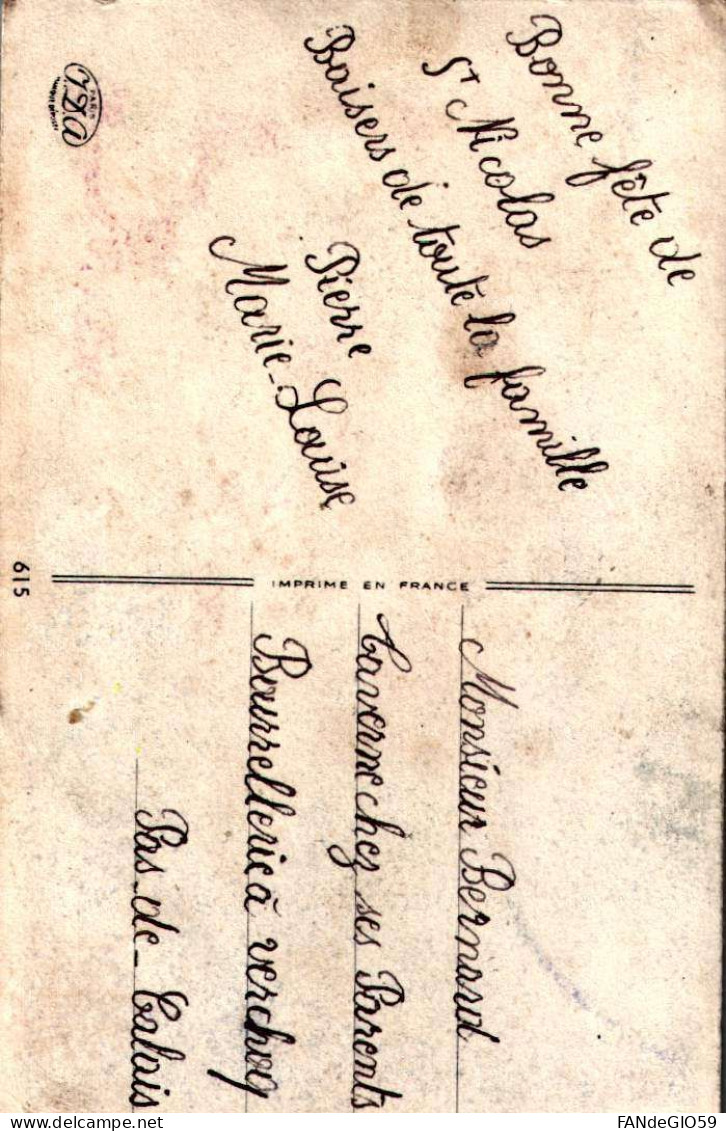 Bonne fête de
St Nicolas
Baisers de toute la famille
Pierre
Marie-Louise
PARIS
IDA
615
IMPRIME EN FRANCE
Monsieur Bernard
Taverne chez ses Parents
Bourrellerie à verchoq
Pas-de-Calais
delcampe.net
FANdeGIO59